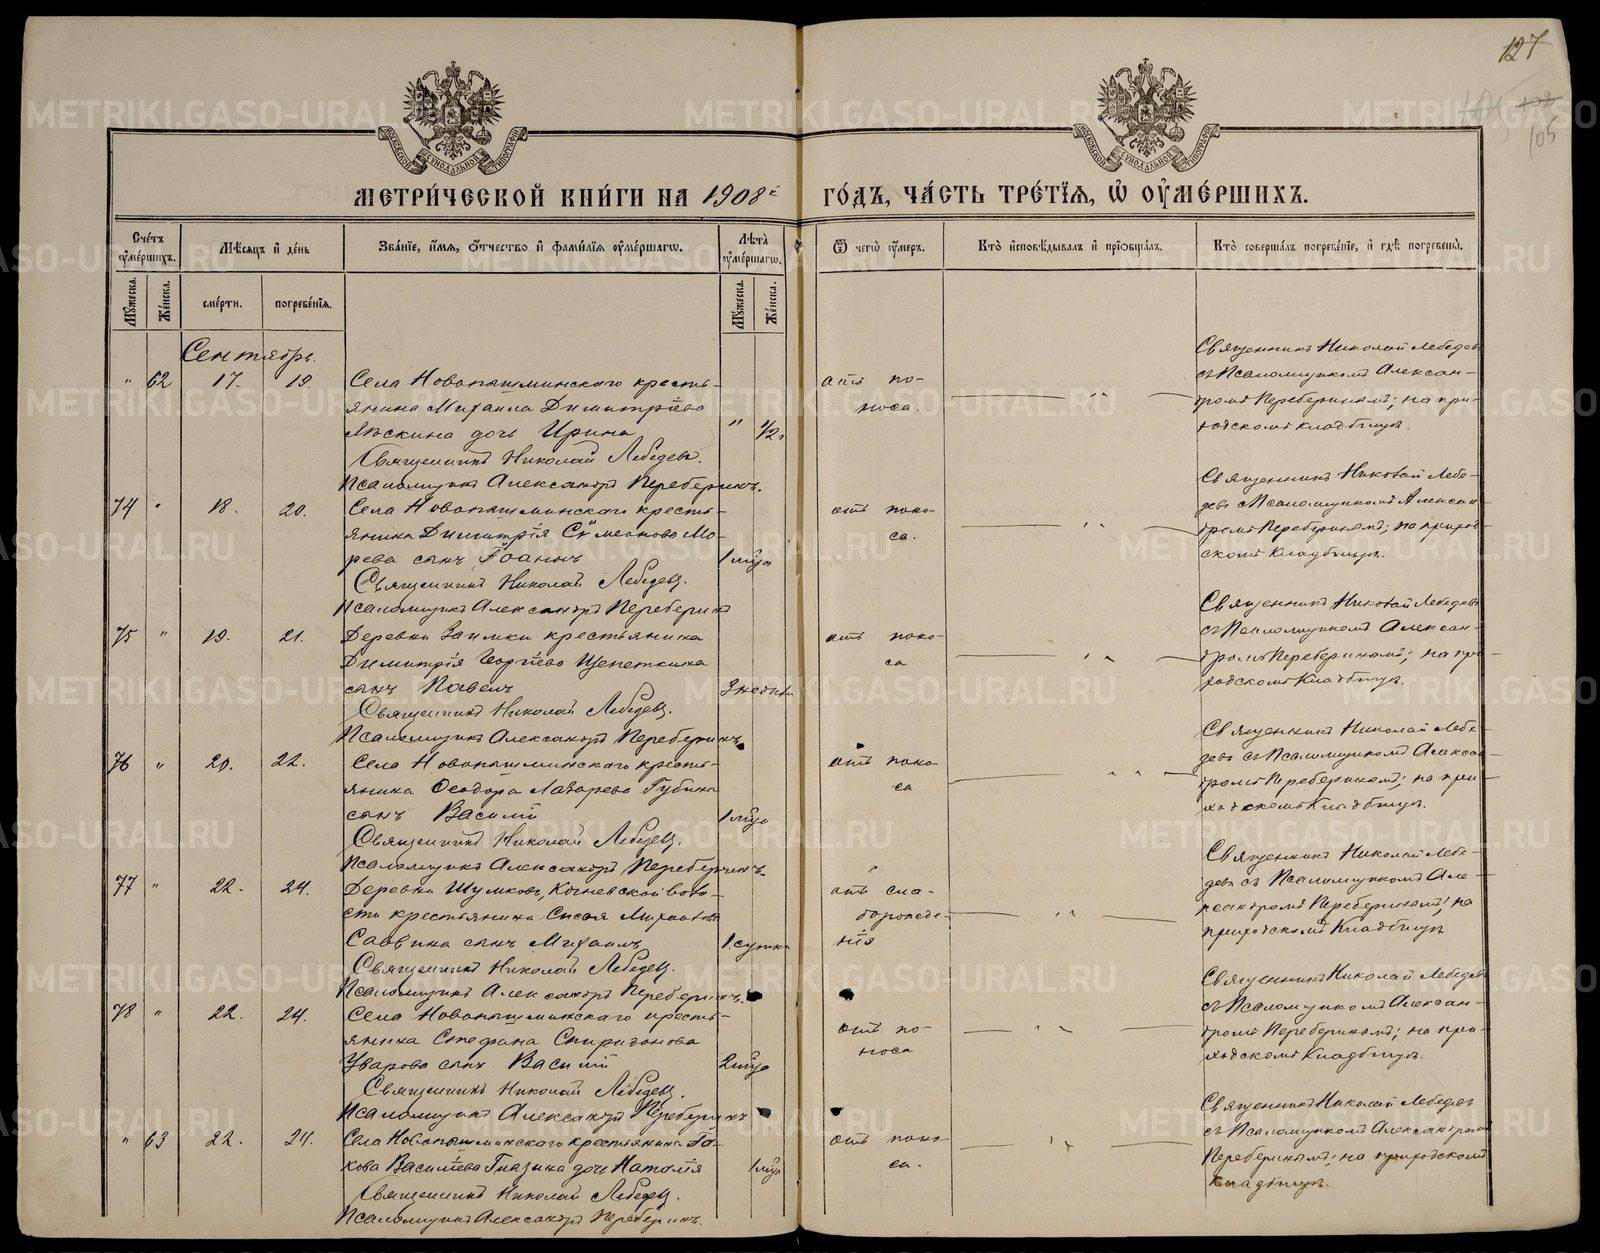 127
103
105
МЕТРИ́ЧЕСКОЙ КНИ́ГИ НА 1908й ГО́ДЪ, ЧА́СТЬ ТРЕ́ТЇѦ, Ѡ҆ ОУ҆МЕ́РШИХЪ.
Счетъ оумершихъ.
Мужеска.
Женска.
Мѣсяцъ и день
смерти.
погребенїя.
Званїе, имя, отчество и фамилїя оумершагѡ.
Лѣта оумершагѡ.
Мужеска.
Женска.
Ѿ чегѡ оумеръ.
Кто исповѣдывалъ и прїобщалъ.
Кто совершалъ погребенїе, и гдѣ погребены.
Сентябрь.
" 62 17. 19.
Села Новопышминскаго кресть-
янина Михаила Димитріева
Лѣскина дочь Ирина
" 1/2 г
Священникъ Николай Лебедевъ.
Псаломщикъ Александръ Переберинъ.
отъ по-
носа.
Священникъ Николай Лебедевъ
съ Псаломщикомъ Алексан-
дромъ Переберинымъ; на при-
ходскомъ кладбищѣ.
74 " 18. 20.
Села Новопышминскаго кресть-
янина Димитрія Симеонова Мо-
рева сынъ Іоаннъ
1 мѣсца
Священникъ Николай Лебедевъ.
Псаломщикъ Александръ Переберинъ
отъ поно-
са.
Священникъ Николай Лебе-
девъ съ Псаломщикомъ Алексан-
дромъ Переберинымъ; на приход-
скомъ кладбищѣ.
75 " 19. 21.
Деревни Заимки крестьянина
Димитрія Георгіева Щепеткина
сынъ Павелъ
3 недѣл.
Священникъ Николай Лебедевъ.
Псаломщикъ Александръ Переберинъ
отъ поно-
са
Священникъ Николай Лебедевъ
съ Псаломщикомъ Алексан-
дромъ Переберинымъ; на при-
ходскомъ Кладбищѣ.
76 " 20. 22.
Села Новопышминскаго кресть-
янина Ѳеодора Лазарева Губина
сынъ Василій
1 мѣсца
Священникъ Николай Лебедевъ.
Псаломщикъ Александръ Переберинъ.
отъ поно-
са
Священникъ Николай Лебе-
девъ съ Псаломщикомъ Алексан-
дромъ Переберинымъ; на при-
ходскомъ Кладбищѣ.
77 " 22. 24.
Деревни Шумковъ, Кочневской воло-
сти крестьянина Сысоя Михаилова
Саввина сынъ Михаилъ
1 сутки
Священникъ Николай Лебедевъ.
Псаломщикъ Александръ Переберинъ.
отъ сла-
борожде-
нія
Священникъ Николай Лебе-
девъ съ Псаломщикомъ Але-
ксандромъ Переберинымъ; на
приходскомъ Кладбищѣ
78 " 22. 24.
Села Новопышминскаго кресть-
янина Стефана Спиридонова
Уварова сынъ Василій
2 мѣсца
Священникъ Николай Лебедевъ.
Псаломщикъ Александръ Переберинъ
отъ по-
носа
Священникъ Николай Лебедевъ
съ Псаломщикомъ Алексан-
дромъ Переберинымъ; на при-
ходскомъ Кладбищѣ.
" 63 22. 24.
Села Новопышминскаго крестьянина Іа-
кова Василіева Глазина дочь Наталія
1 мѣсца
Священникъ Николай Лебедевъ.
Псаломщикъ Александръ Переберинъ.
отъ поно-
са.
Священникъ Николай Лебедевъ
съ Псаломщикомъ Александромъ
Переберинымъ; на приходскомъ
Кладбищѣ.
METRIKI.GASO-URAL.RU